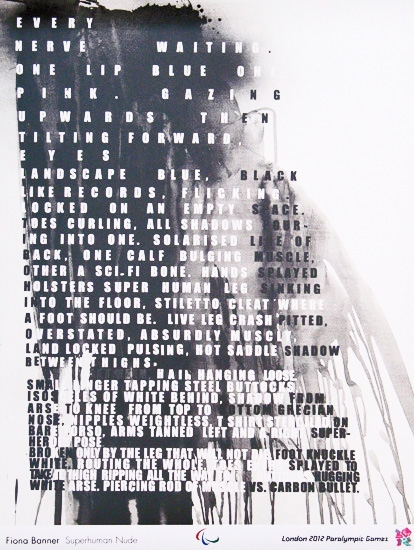 EVERY
NERVE WAITING.
ONE LIP BLUE ONE
PINK. GAZING
UPWARDS THEN
TILTING FORWARD,
EYES
LANDSCAPE BLUE, BLACK
LIKE RECORDS, FLICKING.
LOCKED ON AN EMPTY SPACE.
TOES CURLING, ALL SHADOWS POUR-
ING INTO ONE. SOLARISED LIFE OF
BACK, ONE CALF BULGING MUSCLE,
OTHER A SCI-FI BONE. HANDS SPLAYED
HOLSTERS SUPER HUMAN LEG SINKING
INTO THE FLOOR, STILETTO CLEAT WHERE
A FOOT SHOULD BE. LIVE LEG CRASH PITTED,
OVERSTATED, ABSURDLY MUSCLY,
LAND LOCKED PULSING, HOT SADDLE SHADOW
BETWEEN THIGHS.
HAIR HANGING LOOSE
SMALL FINGER TAPPING STEEL BUTTOCKS,
OF WHITE BEHIND, SHADOW FROM
ARSE TO KNEE FROM TOP TO BOTTOM GRECIAN
NOSE, NIPPLES WEIGHTLESS, T SHIRT ON
BARE TORSO, ARMS TANNED SUPER-
HERO POSE
BROKEN ONLY BY THE LEG THAT WILL NOT FOOT KNUCKLE
WHITE, ROUTING THE WHOLE. SPLAYED TO
THIGH RIPPING ALL THE HUGGING
WHITE ARSE. PIERCING ROD VS. CARBON BULLET.
Fiona Banner Superhuman Nude
London 2012 Paralympic Games